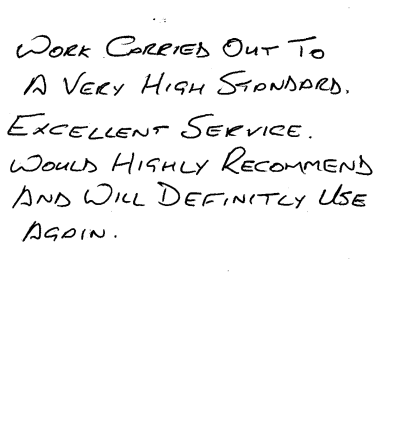 WORK CARRIED OUT TO
A VERY HIGH STANDARD.
EXCELLENT SERVICE.
WOULD HIGHLY RECOMMEND
AND WILL DEFINITLY USE
AGAIN.